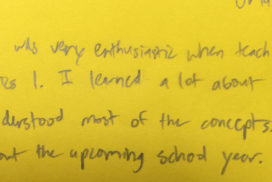 was very enthusiastic when teach
1. I learned a lot about
derstood most of the concepts.
out the upcoming school year.